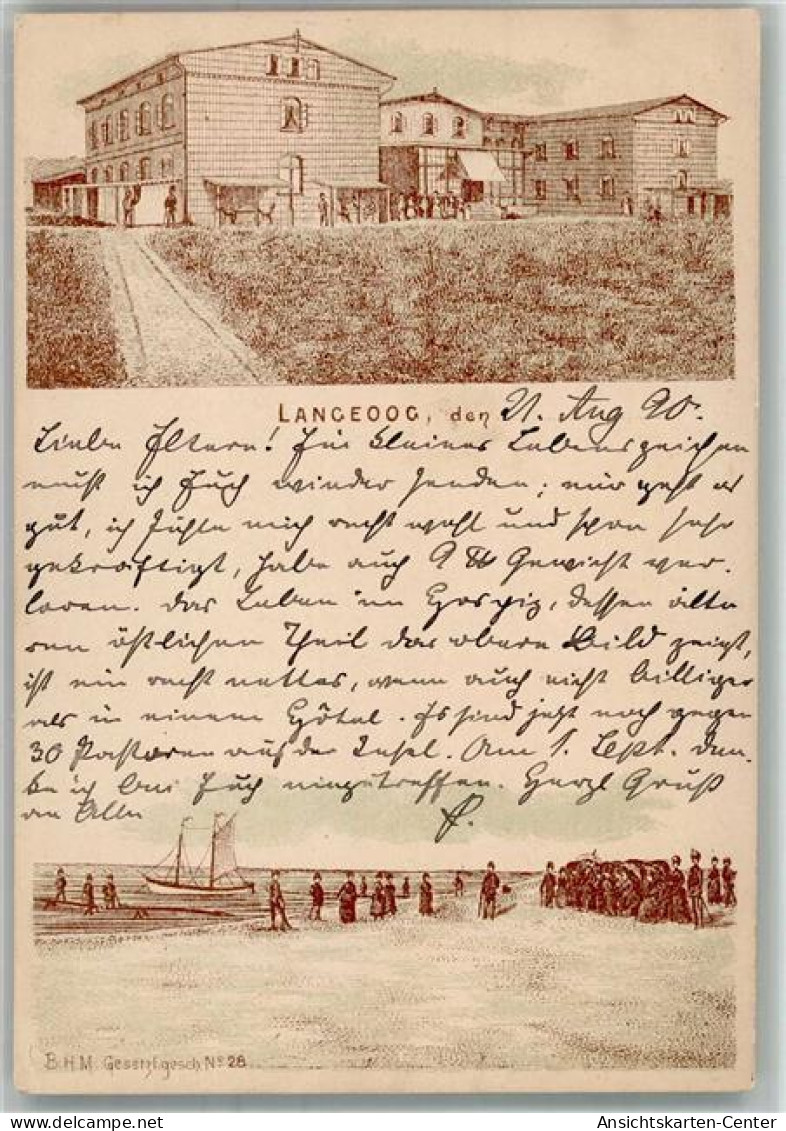 LANGEOOG, den 21. Aug 90.
Liebe Eltern! Ein kleines Lebenszeichen
muß ich Euch wieder senden; mir geht es
gut, ich fühle mich recht wohl und schon sehr
gekräftigt, habe auch 9 ℔ Gewicht ver-
loren. Das Leben im Hospiz, dessen älte
ren östlichen Theil das obere Bild zeigt,
ist ein recht nettes, wenn auch nicht billiger
als in einem Hôtel. Es sind jetzt noch gegen
30 Pastoren auf der Insel. Am 1. Sept. den-
ke ich bei Euch einzutreffen. Herzl Gruß
an Alle
B.H.M. Gesetzl.gesch. No 28
Ansichtskarten-Center